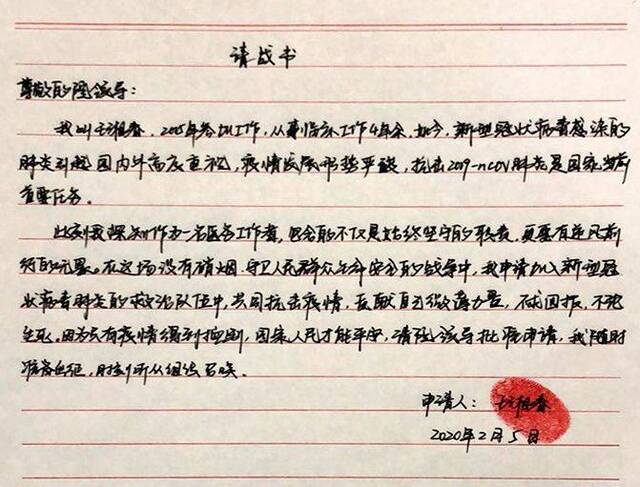 请战书
尊敬的院领导：
我叫王祖春，2015年参加工作，从事临床工作4年余，如今，新型冠状病毒感染的
肺炎引起国内外高度重视，疫情发展形势严峻，抗击2019-nCOV肺炎是国家当前
重要任务。
此刻我深知作为一名医务工作者，包含的不仅是始终坚守的职责，更要有逆风前
行的无畏。在这场没有硝烟、守卫人民群众生命安全的战争中，我申请加入新型冠
状病毒肺炎的救治队伍中，共同抗击疫情，贡献自己微薄力量，不求回报，不论
生死。因为只有疫情得到控制，国家人民才能平安，请院领导批准申请，我随时
准备出征，时刻听从组织召唤。
申请人：
2020年2月5日